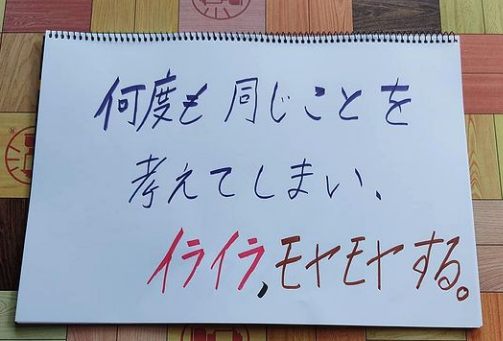 何度も同じことを
考えてしまい、
イライラ,モヤモヤする。